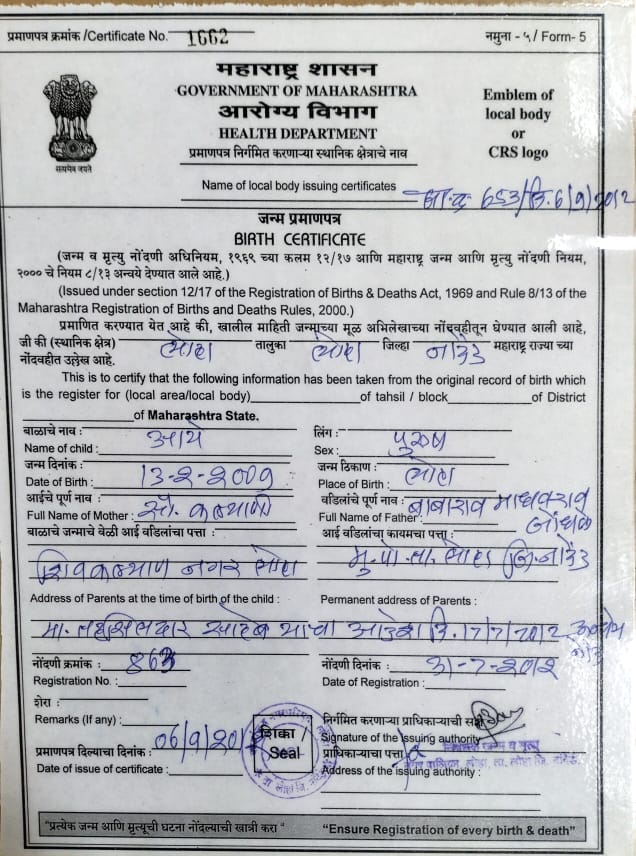 प्रमाणपत्र क्रमांक /Certificate No. 1662 नमुना - ५ / Form- 5
महाराष्ट्र शासन
GOVERNMENT OF MAHARASHTRA
आरोग्य विभाग
HEALTH DEPARTMENT
प्रमाणपत्र निर्गमित करणाऱ्या स्थानिक क्षेत्राचे नाव
Emblem of
local body
or
CRS logo
सत्यमेव जयते
Name of local body issuing certificates जा.क्र 653/दि.6/9/2012
जन्म प्रमाणपत्र
BIRTH CERTIFICATE
(जन्म व मृत्यु नोंदणी अधिनियम, १९६९ च्या कलम १२/१७ आणि महाराष्ट्र जन्म आणि मृत्यु नोंदणी नियम,
२००० चे नियम ८/१३ अन्वये देण्यात आले आहे.)
(Issued under section 12/17 of the Registration of Births & Deaths Act, 1969 and Rule 8/13 of the
Maharashtra Registration of Births and Deaths Rules, 2000.)
प्रमाणित करण्यात येत आहे की, खालील माहिती जन्माच्या मूळ अभिलेखाच्या नोंदवहीतून घेण्यात आली आहे,
जी की (स्थानिक क्षेत्र) लोहा तालुका लोहा जिल्हा नांदेड महाराष्ट्र राज्या च्या
नोंदवहीत उल्लेख आहे.
This is to certify that the following information has been taken from the original record of birth which
is the register for (local area/local body) of tahsil / block of District
of Maharashtra State.
बाळाचे नाव : लिंग :
Name of child : Sex : पुरुष
जन्म दिनांक : जन्म ठिकाण :
Date of Birth : 13-2-2009 Place of Birth : लोहा
आईचे पूर्ण नाव : वडिलांचे पूर्ण नाव : बाबाराव माधवराव
Full Name of Mother : सौ. कल्याणी Full Name of Father :
बाळाचे जन्माचे वेळी आई वडिलांचा पत्ता : आई वडिलांचा कायमचा पत्ता :
शिवकल्याण नगर लोहा मु.पो.ता. लोहा जि. नांदेड
Address of Parents at the time of birth of the child : Permanent address of Parents :
मा. तहसिलदार साहेब यांचा आदेश दि. 17/7/2012
नोंदणी क्रमांक : 863 नोंदणी दिनांक :
Registration No. : Date of Registration : 31-7-2012
शेरा :
Remarks (If any) : निर्गमित करणाऱ्या प्राधिकाऱ्याची सही
Signature of the issuing authority
शिक्का /
Seal
प्रमाणपत्र दिल्याचा दिनांक : 06/9/2012 प्राधिकाऱ्याचा पत्ता :
Date of issue of certificate : Address of the issuing authority :
"प्रत्येक जन्म आणि मृत्यूची घटना नोंदल्याची खात्री करा " "Ensure Registration of every birth & death"